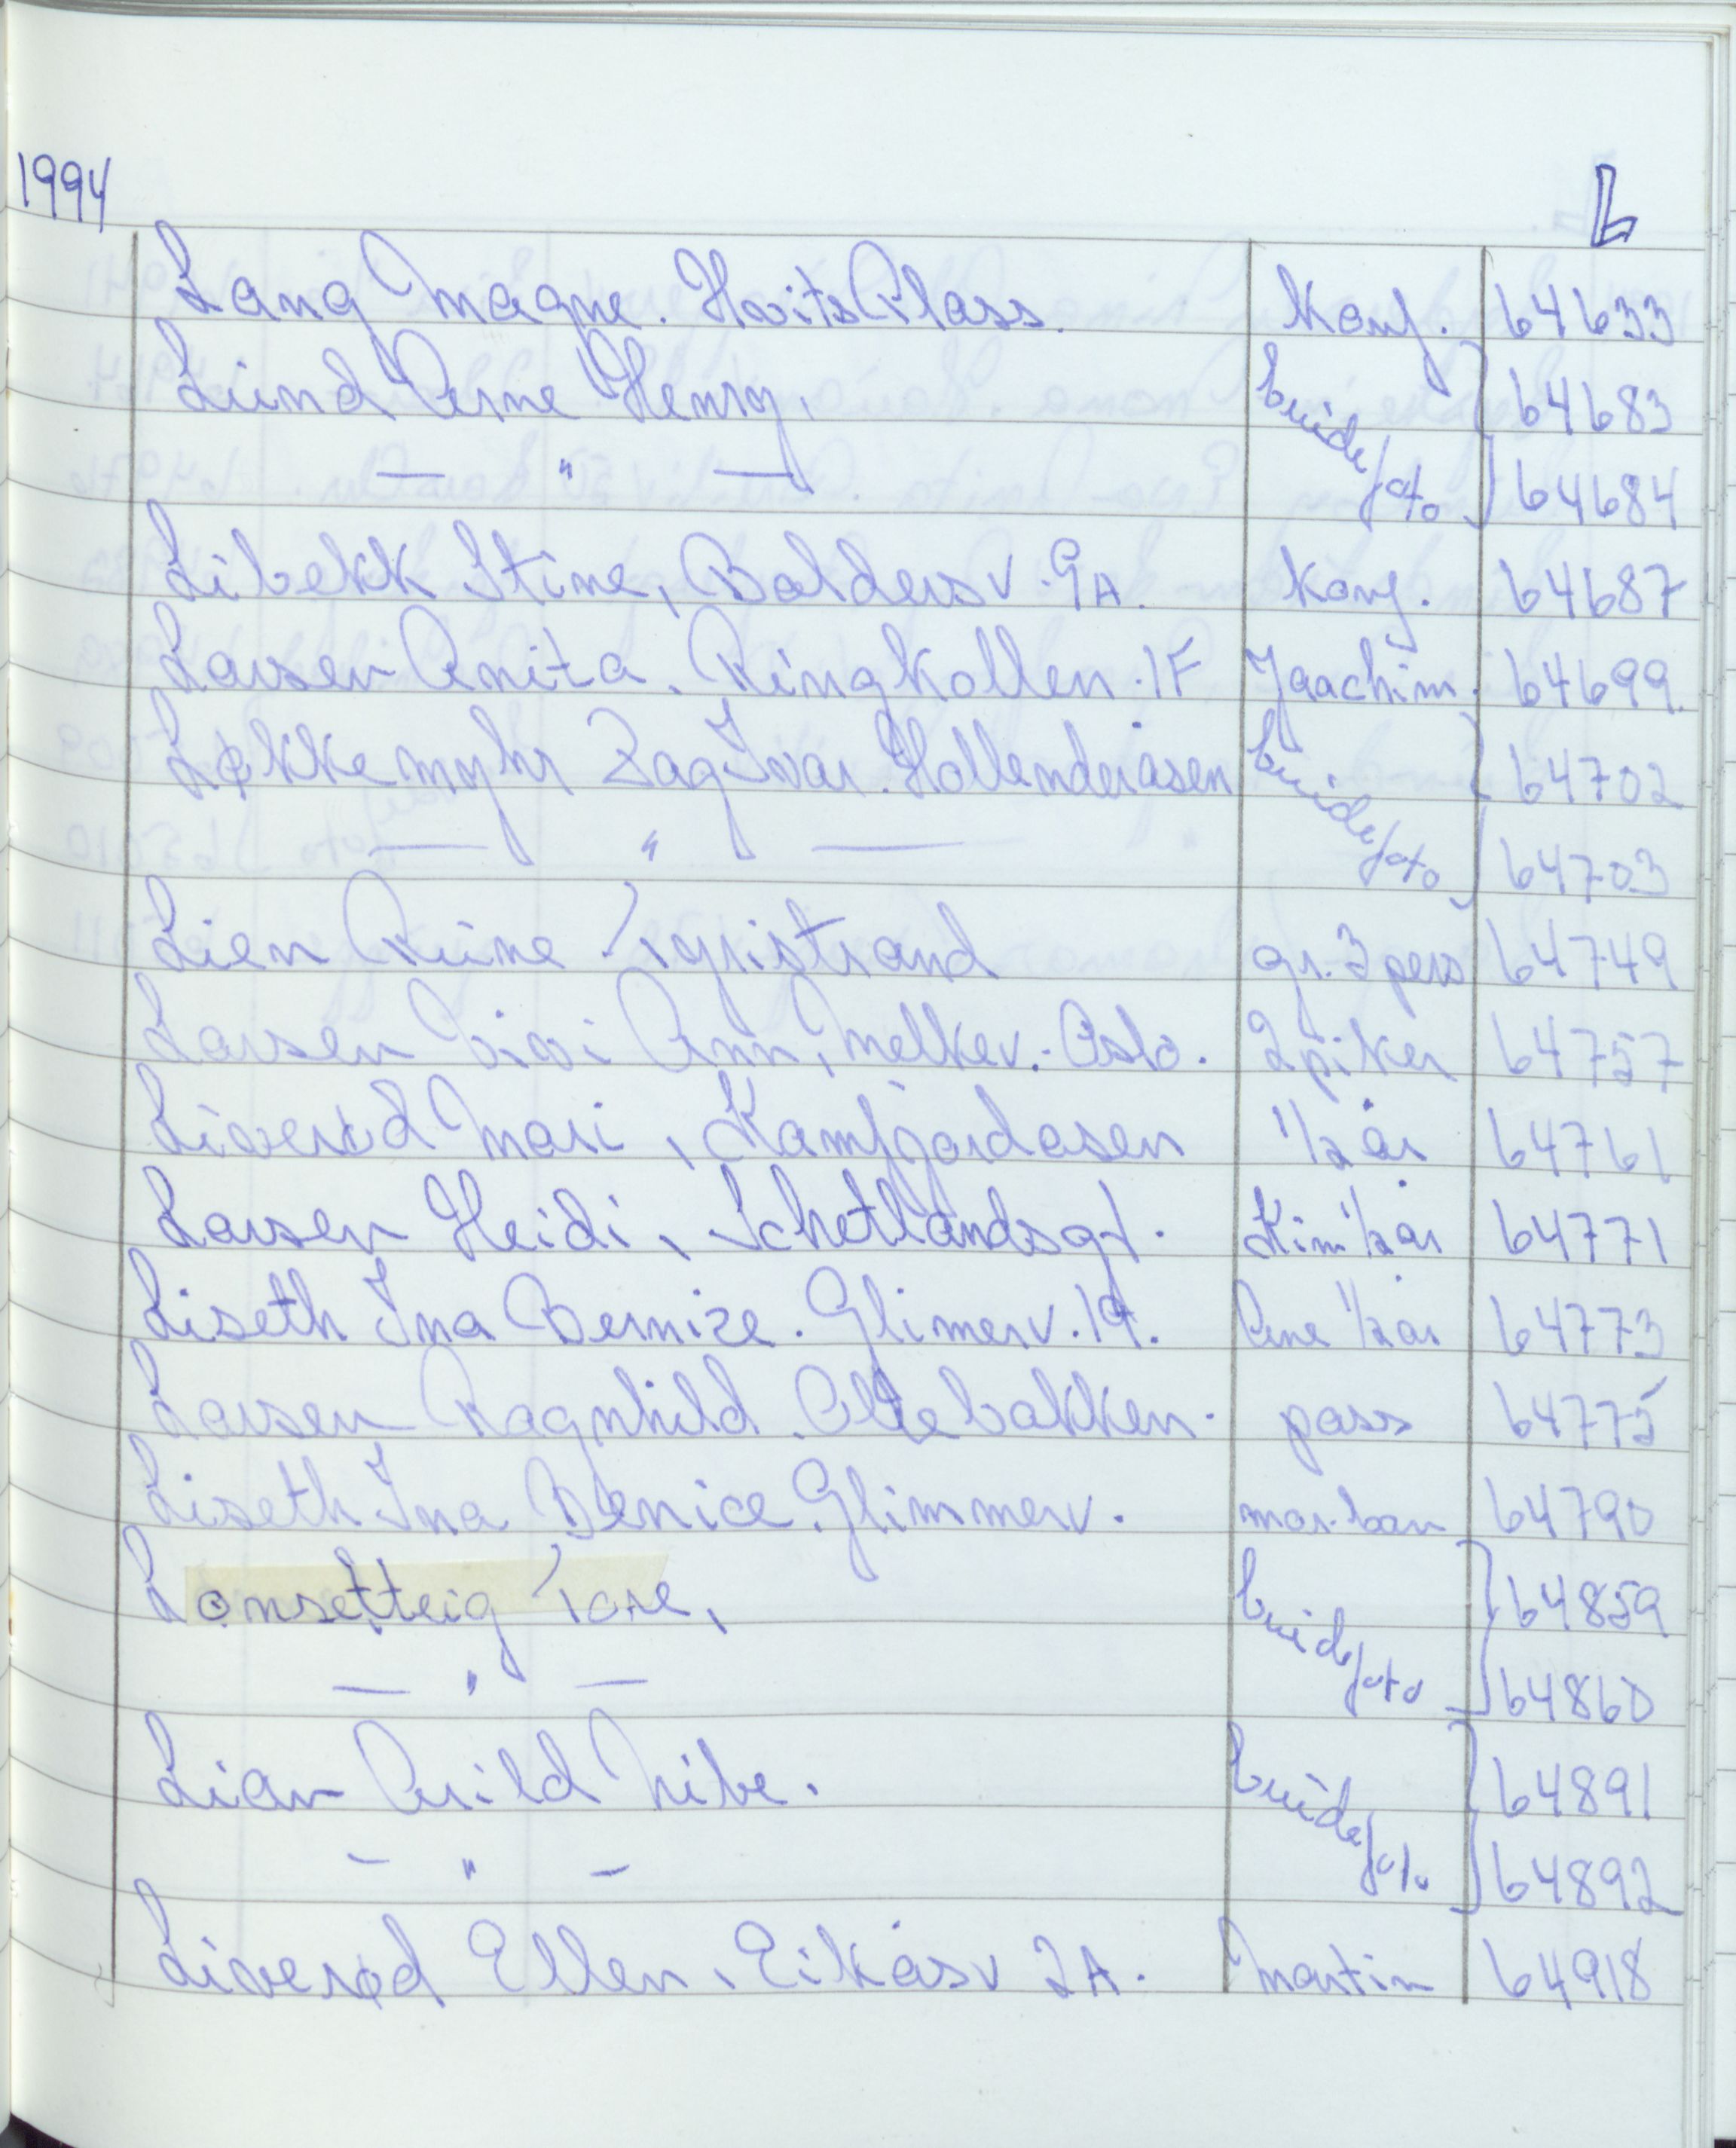 1994 L
Lang Magne. Hvitts Plass. Konf. 64633
Lund Arne Henry, brudefoto 64683
— " — 64684
Libekk Stine, Boldersv. 9A. Konf. 64687
Larsen Anita. Ringkollen. 1F Joachim. 64699.
Løkkemyhr Dag Ivar. Hollenderåsen brudefoto 64702
— " — 64703
Lien Rune Tyristrand gr. 3 pers 64749
Larsen Vivi Ann, Melkev. Oslo. 2 piker 64757
Liverød Mari, Kamfjordåsen 1/2 år 64761
Larsen Heidi, Schetlandsgt. Kim 1/2 år 64771
Liseth Ina Bernice. Glimerv. 19. Ane 1/2 år 64773
Larsen Ragnhild. Ollebakken. pass 64775
Liseth Ina Benice. Glimmerv. mor-barn 64790
Lonsetteig Tore, brudefoto 64859
— " — 64860
Lian Arild Vibe. brudefoto 64891
— " — 64892
Liverød Ellen, Eikåsv 2A. Martin 64918